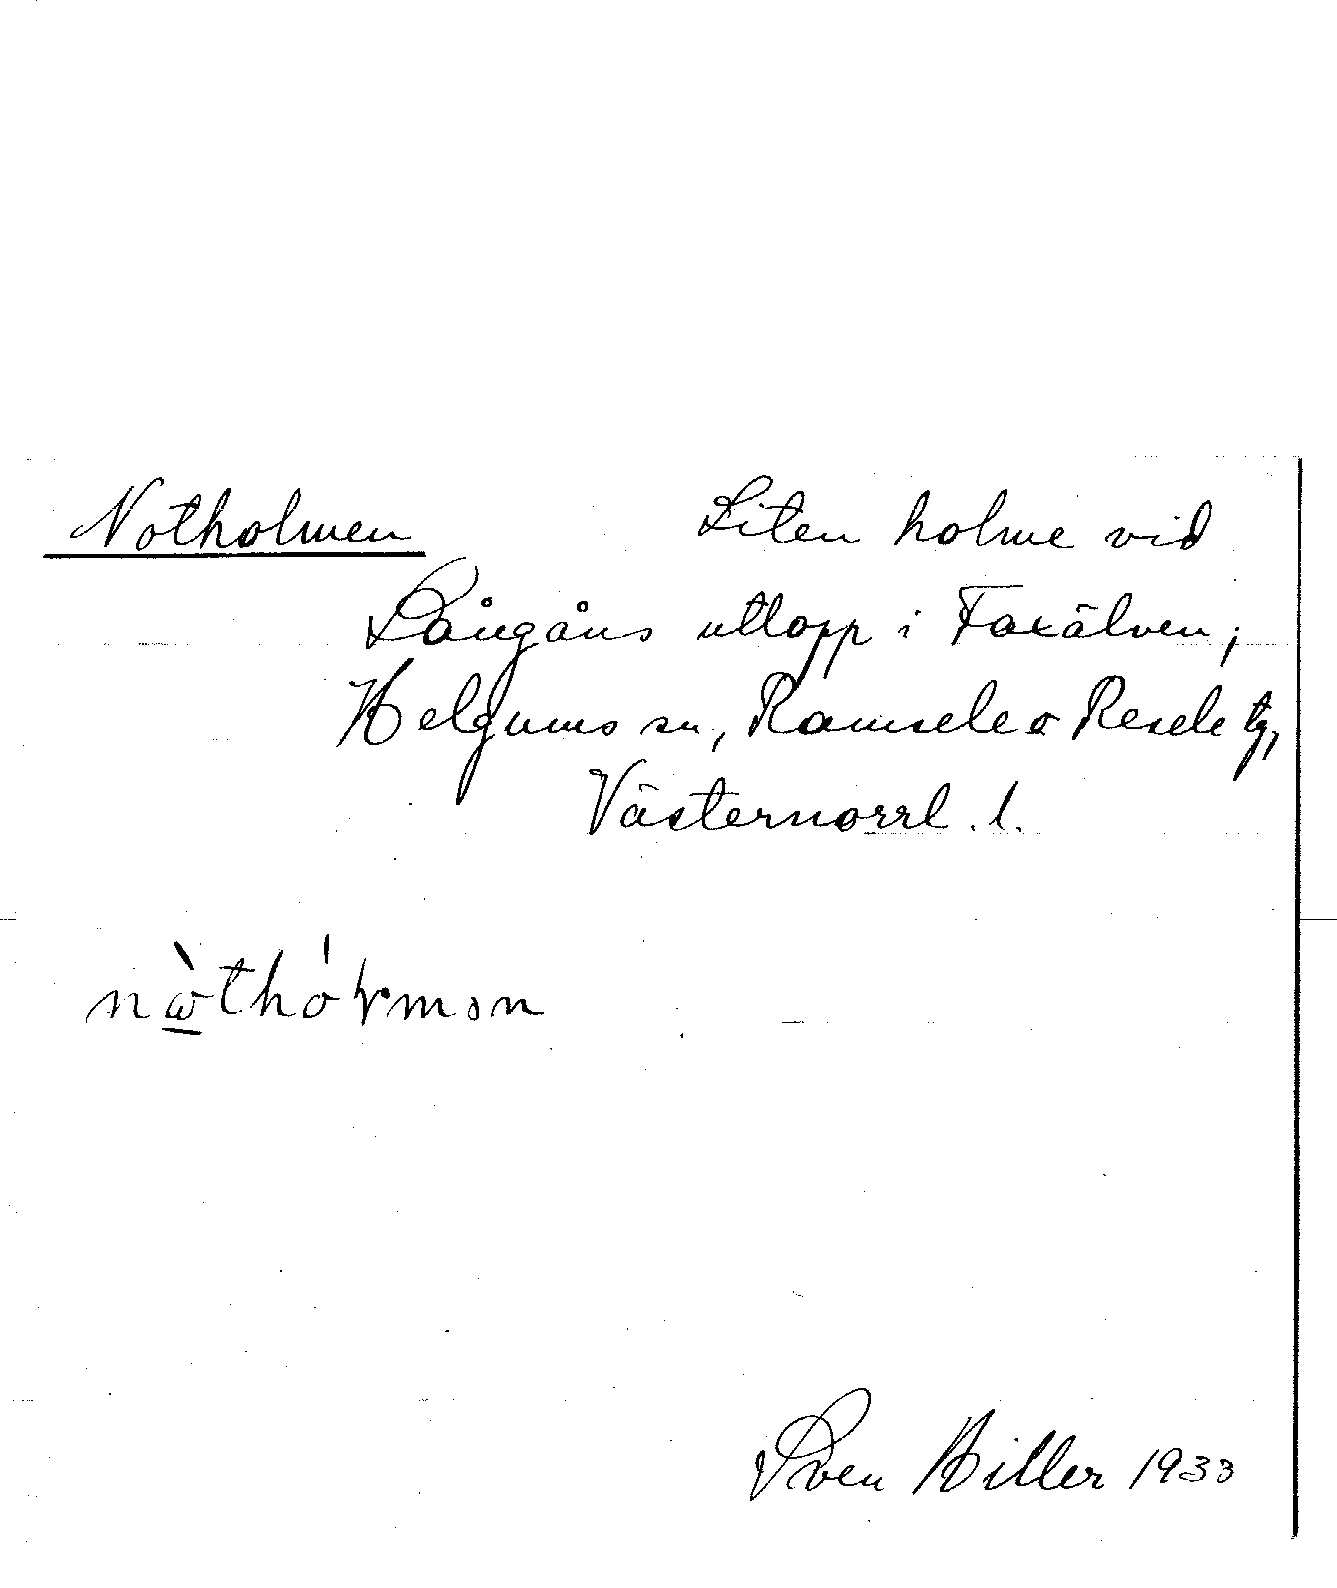 Notholmen Liten holme vid
Långåns utlopp i Faxälven;
Helgums sn, Ramsele o Resele tg,
Västernorrl. l.
Sven Hiller 1933